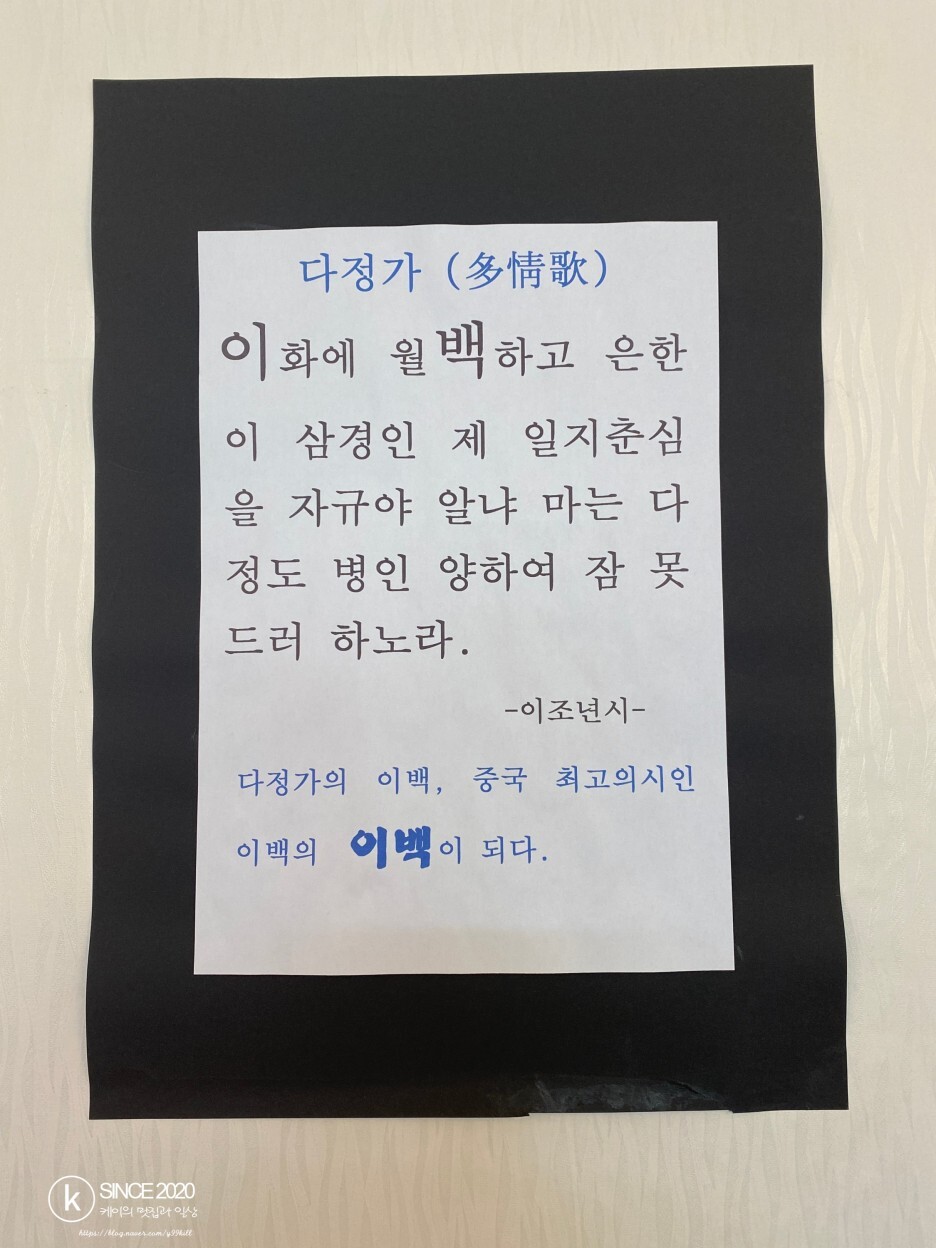 다정가 (多情歌)
이화에 월백하고 은한
이 삼경인 제 일지춘심
을 자규야 알냐 마는 다
정도 병인 양하여 잠 못
드러 하노라.
-이조년시-
다정가의 이백, 중국 최고의시인
이백의 이백이 되다.
k SINCE 2020
케이의 맛집과 일상
https://blog.naver.com/y99hill